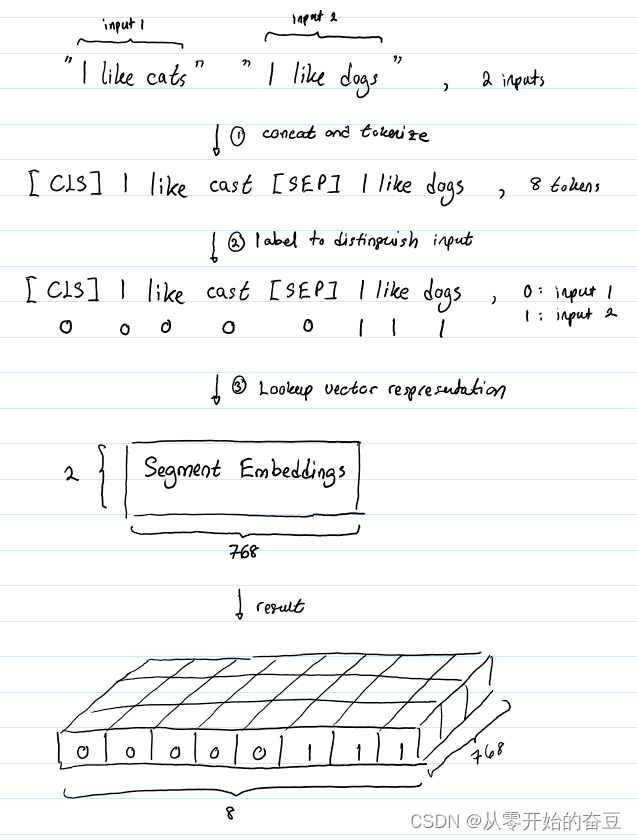 input 1 input 2
"I like cats" "I like dogs", 2 inputs
① concat and tokenize
[CLS] I like cast [SEP] I like dogs, 8 tokens
② label to distinguish input
[CLS] I like cast [SEP] I like dogs, 0: input 1
0 0 0 0 0 1 1 1 1: input 2
③ Lookup vector respresentation
2 Segment Embeddings
768
result
0 0 0 0 0 1 1 1
768
8
CSDN @从零开始的奋豆